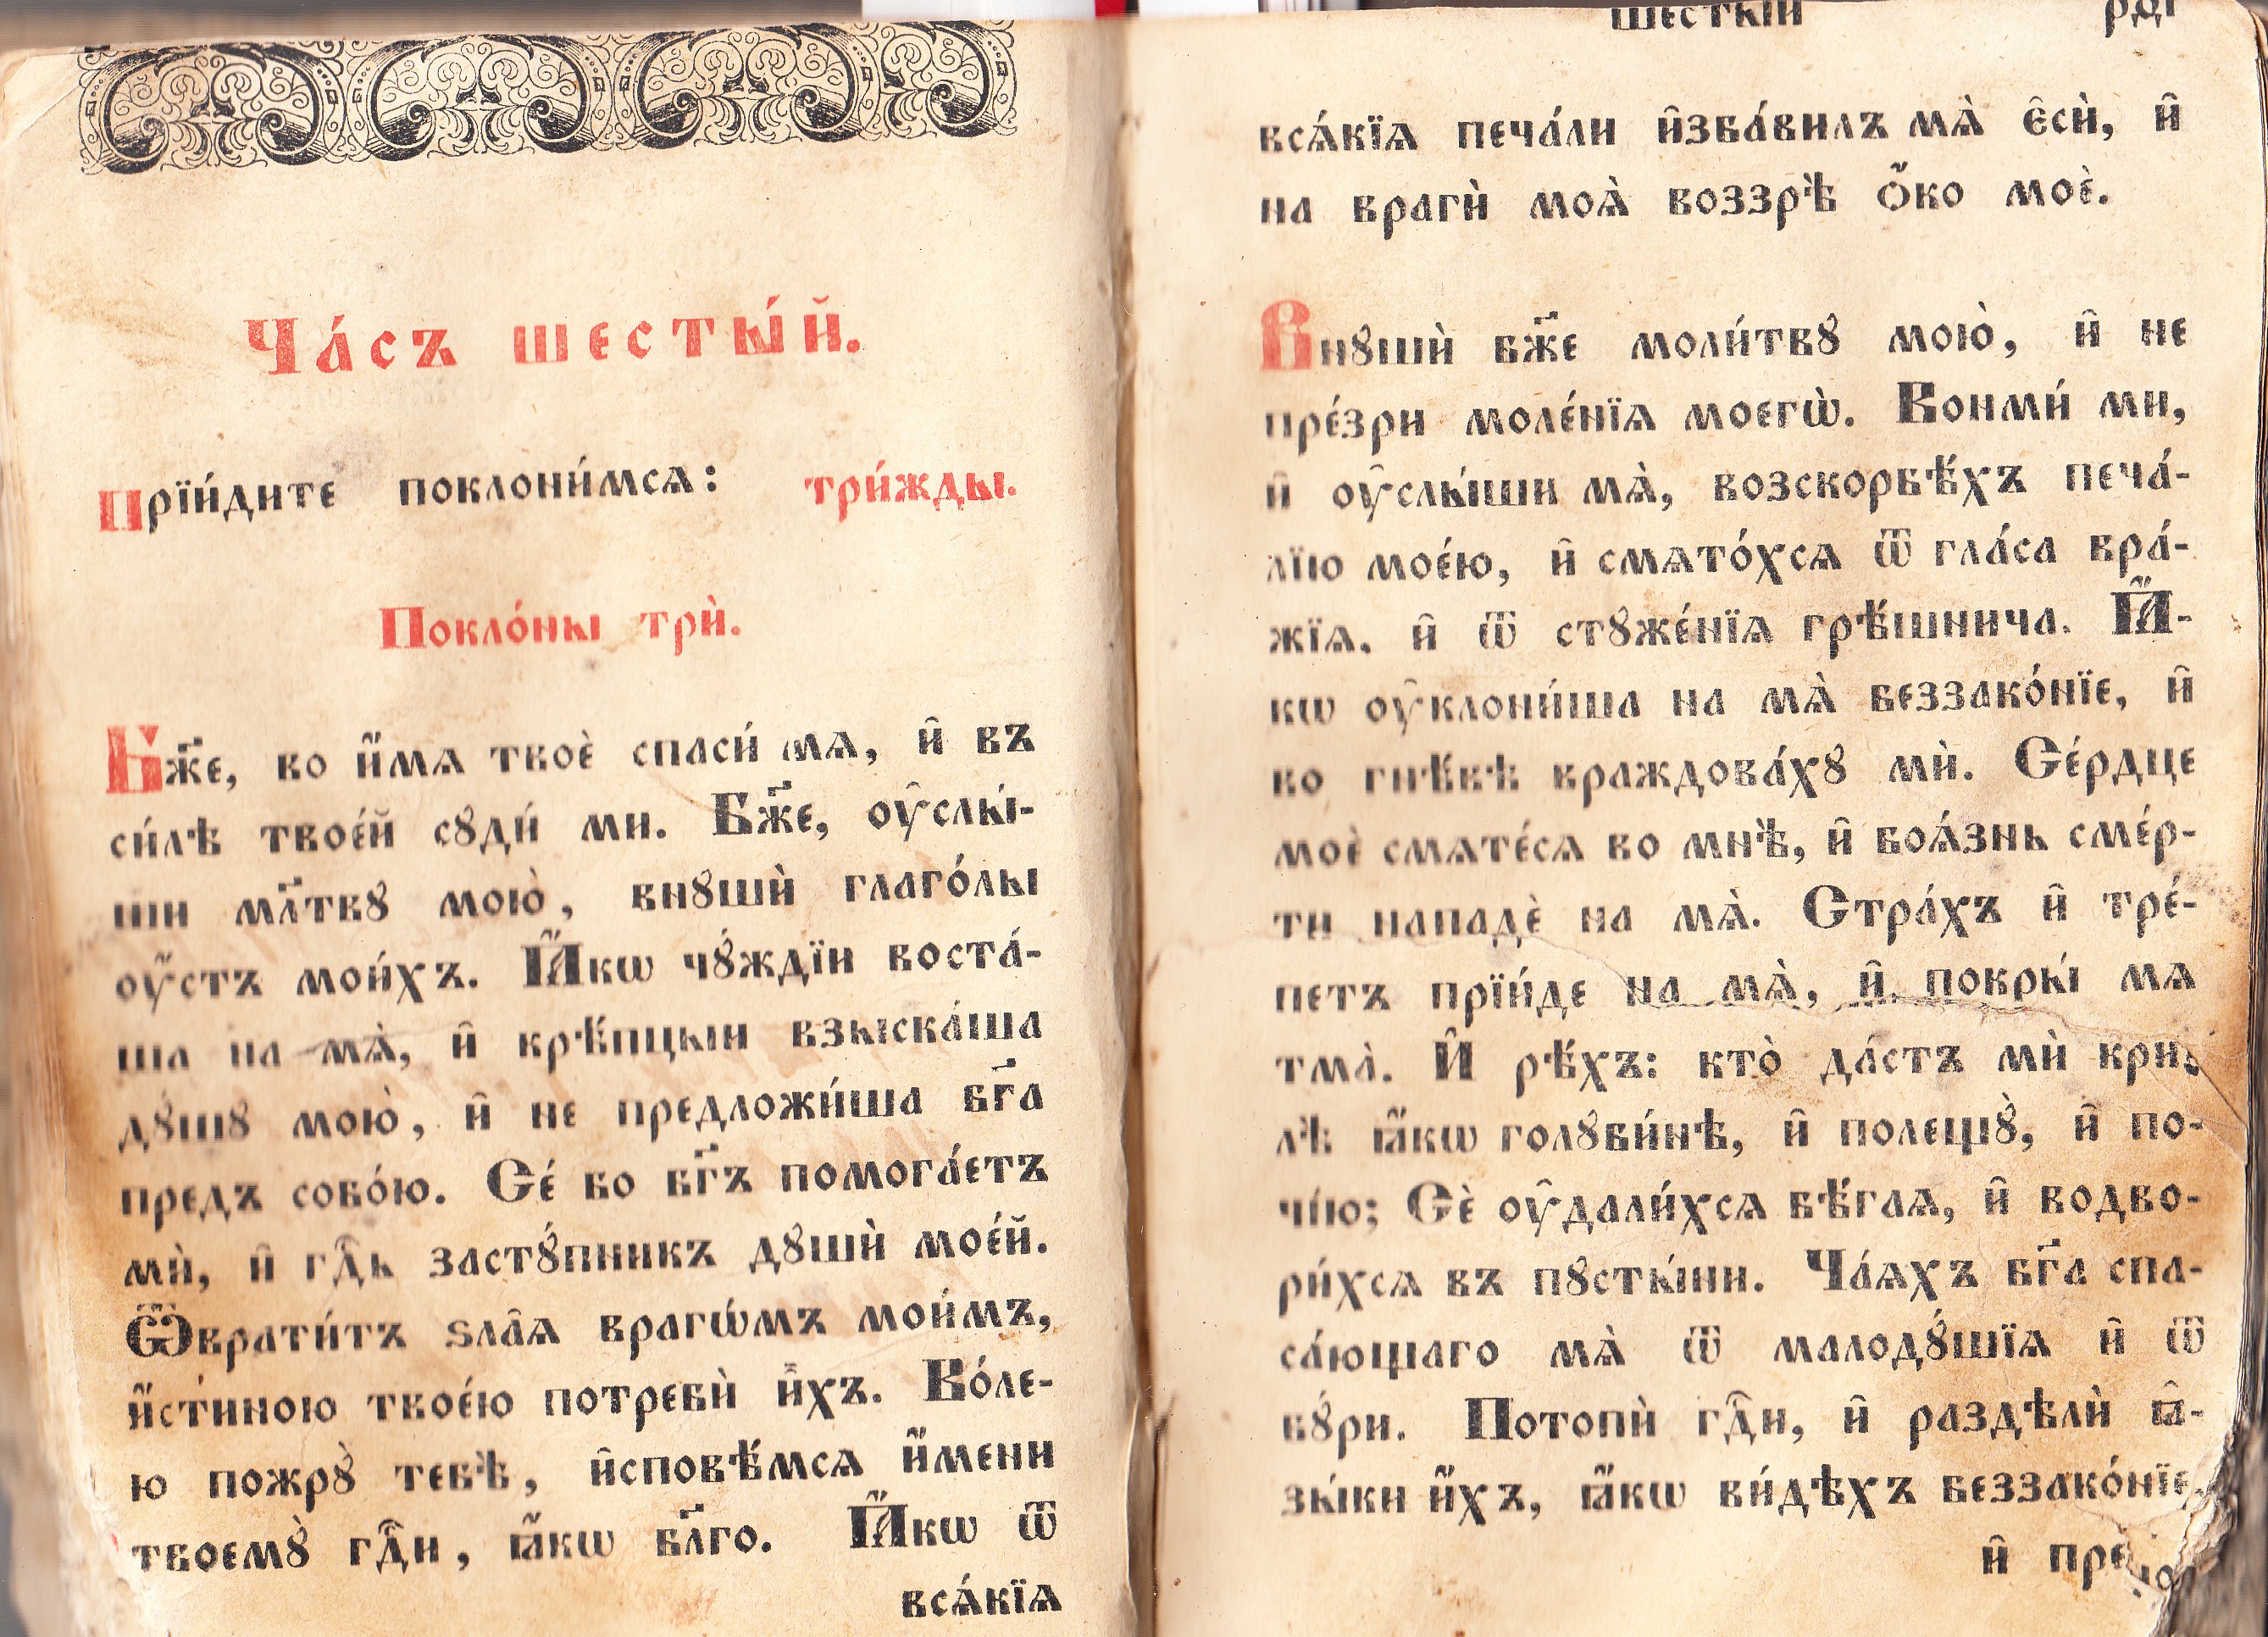 Ча́съ шесты́й.
Прїи́дите поклони́мсѧ: три́жды.
Покло́ны трѝ.
Бж҃е, во и҆́мѧ твоѐ спаси́ мѧ, и҆ въ
си́лѣ твое́й сꙋди́ ми. Бж҃е, ᲂу҆слы́-
ши мл҃твꙋ мою̀, внꙋшѝ глаго́лы
ᲂу҆́стъ мои́хъ. Ꙗ҆́кѡ чꙋ́ждїи воста́-
ша на мѧ̀, и҆ крѣ́пцыи взыска́ша
дꙋ́шꙋ мою̀, и҆ не предложи́ша бг҃а
предъ собо́ю. Се́ бо бг҃ъ помога́етъ
мѝ, и҆ гдⷭ҇ь застꙋ́пникъ дꙋшѝ мое́й.
Ѿврати́тъ ѕла̑ѧ врагѡ́мъ мои́мъ,
и҆́стиною твое́ю потребѝ и҆̀хъ. Во́ле-
ю пожрꙋ̀ тебѣ̀, и҆сповѣ́мсѧ и҆́мени
твоемꙋ̀ гдⷭ҇и, ꙗ҆́кѡ бл҃го. Ꙗ҆́кѡ ѿ
всѧ́кїѧ
шесты́й рд҃і
всѧ́кїѧ печа́ли и҆зба́вилъ мѧ̀ є҆сѝ, и҆
на врагѝ моѧ̀ воззрѣ̀ ѻ҆́ко моѐ.
Внꙋшѝ бж҃е моли́твꙋ мою̀, и҆ не
пре́зри моле́нїѧ моегѡ̀. Вонми́ ми,
и҆ ᲂу҆слы́ши мѧ̀, возскорбѣ́хъ печа́-
лїю мое́ю, и҆ смѧто́хсѧ ѿ гла́са вра́-
жїѧ, и҆ ѿ стꙋже́нїѧ грѣ́шнича. Ꙗ҆́-
кѡ ᲂу҆клони́ша на мѧ̀ беззако́нїе, и҆
во гнѣ́вѣ враждова́хꙋ мѝ. Се́рдце
моѐ смѧте́сѧ во мнѣ̀, и҆ боѧ́знь сме́р-
ти нападѐ на мѧ̀. Стра́хъ и҆ тре́-
петъ прїи́де на мѧ̀, и҆ покры́ мѧ
тма̀. И҆ рѣ́хъ: кто̀ да́стъ мѝ кри-
лѣ̀ ꙗ҆́кѡ голꙋби́нѣ, и҆ полещꙋ̀, и҆ по-
чі́ю; Сѐ ᲂу҆дали́хсѧ бѣ́гаѧ, и҆ водво-
ри́хсѧ въ пꙋсты́ни. Ча́ѧхъ бг҃а спа-
са́ющаго мѧ̀ ѿ малодꙋ́шїѧ и҆ ѿ
бꙋ́ри. Потопѝ гдⷭ҇и, и҆ раздѣлѝ ꙗ҆-
зы́ки и҆́хъ, ꙗ҆́кѡ ви́дѣхъ беззако́нїе,
и҆